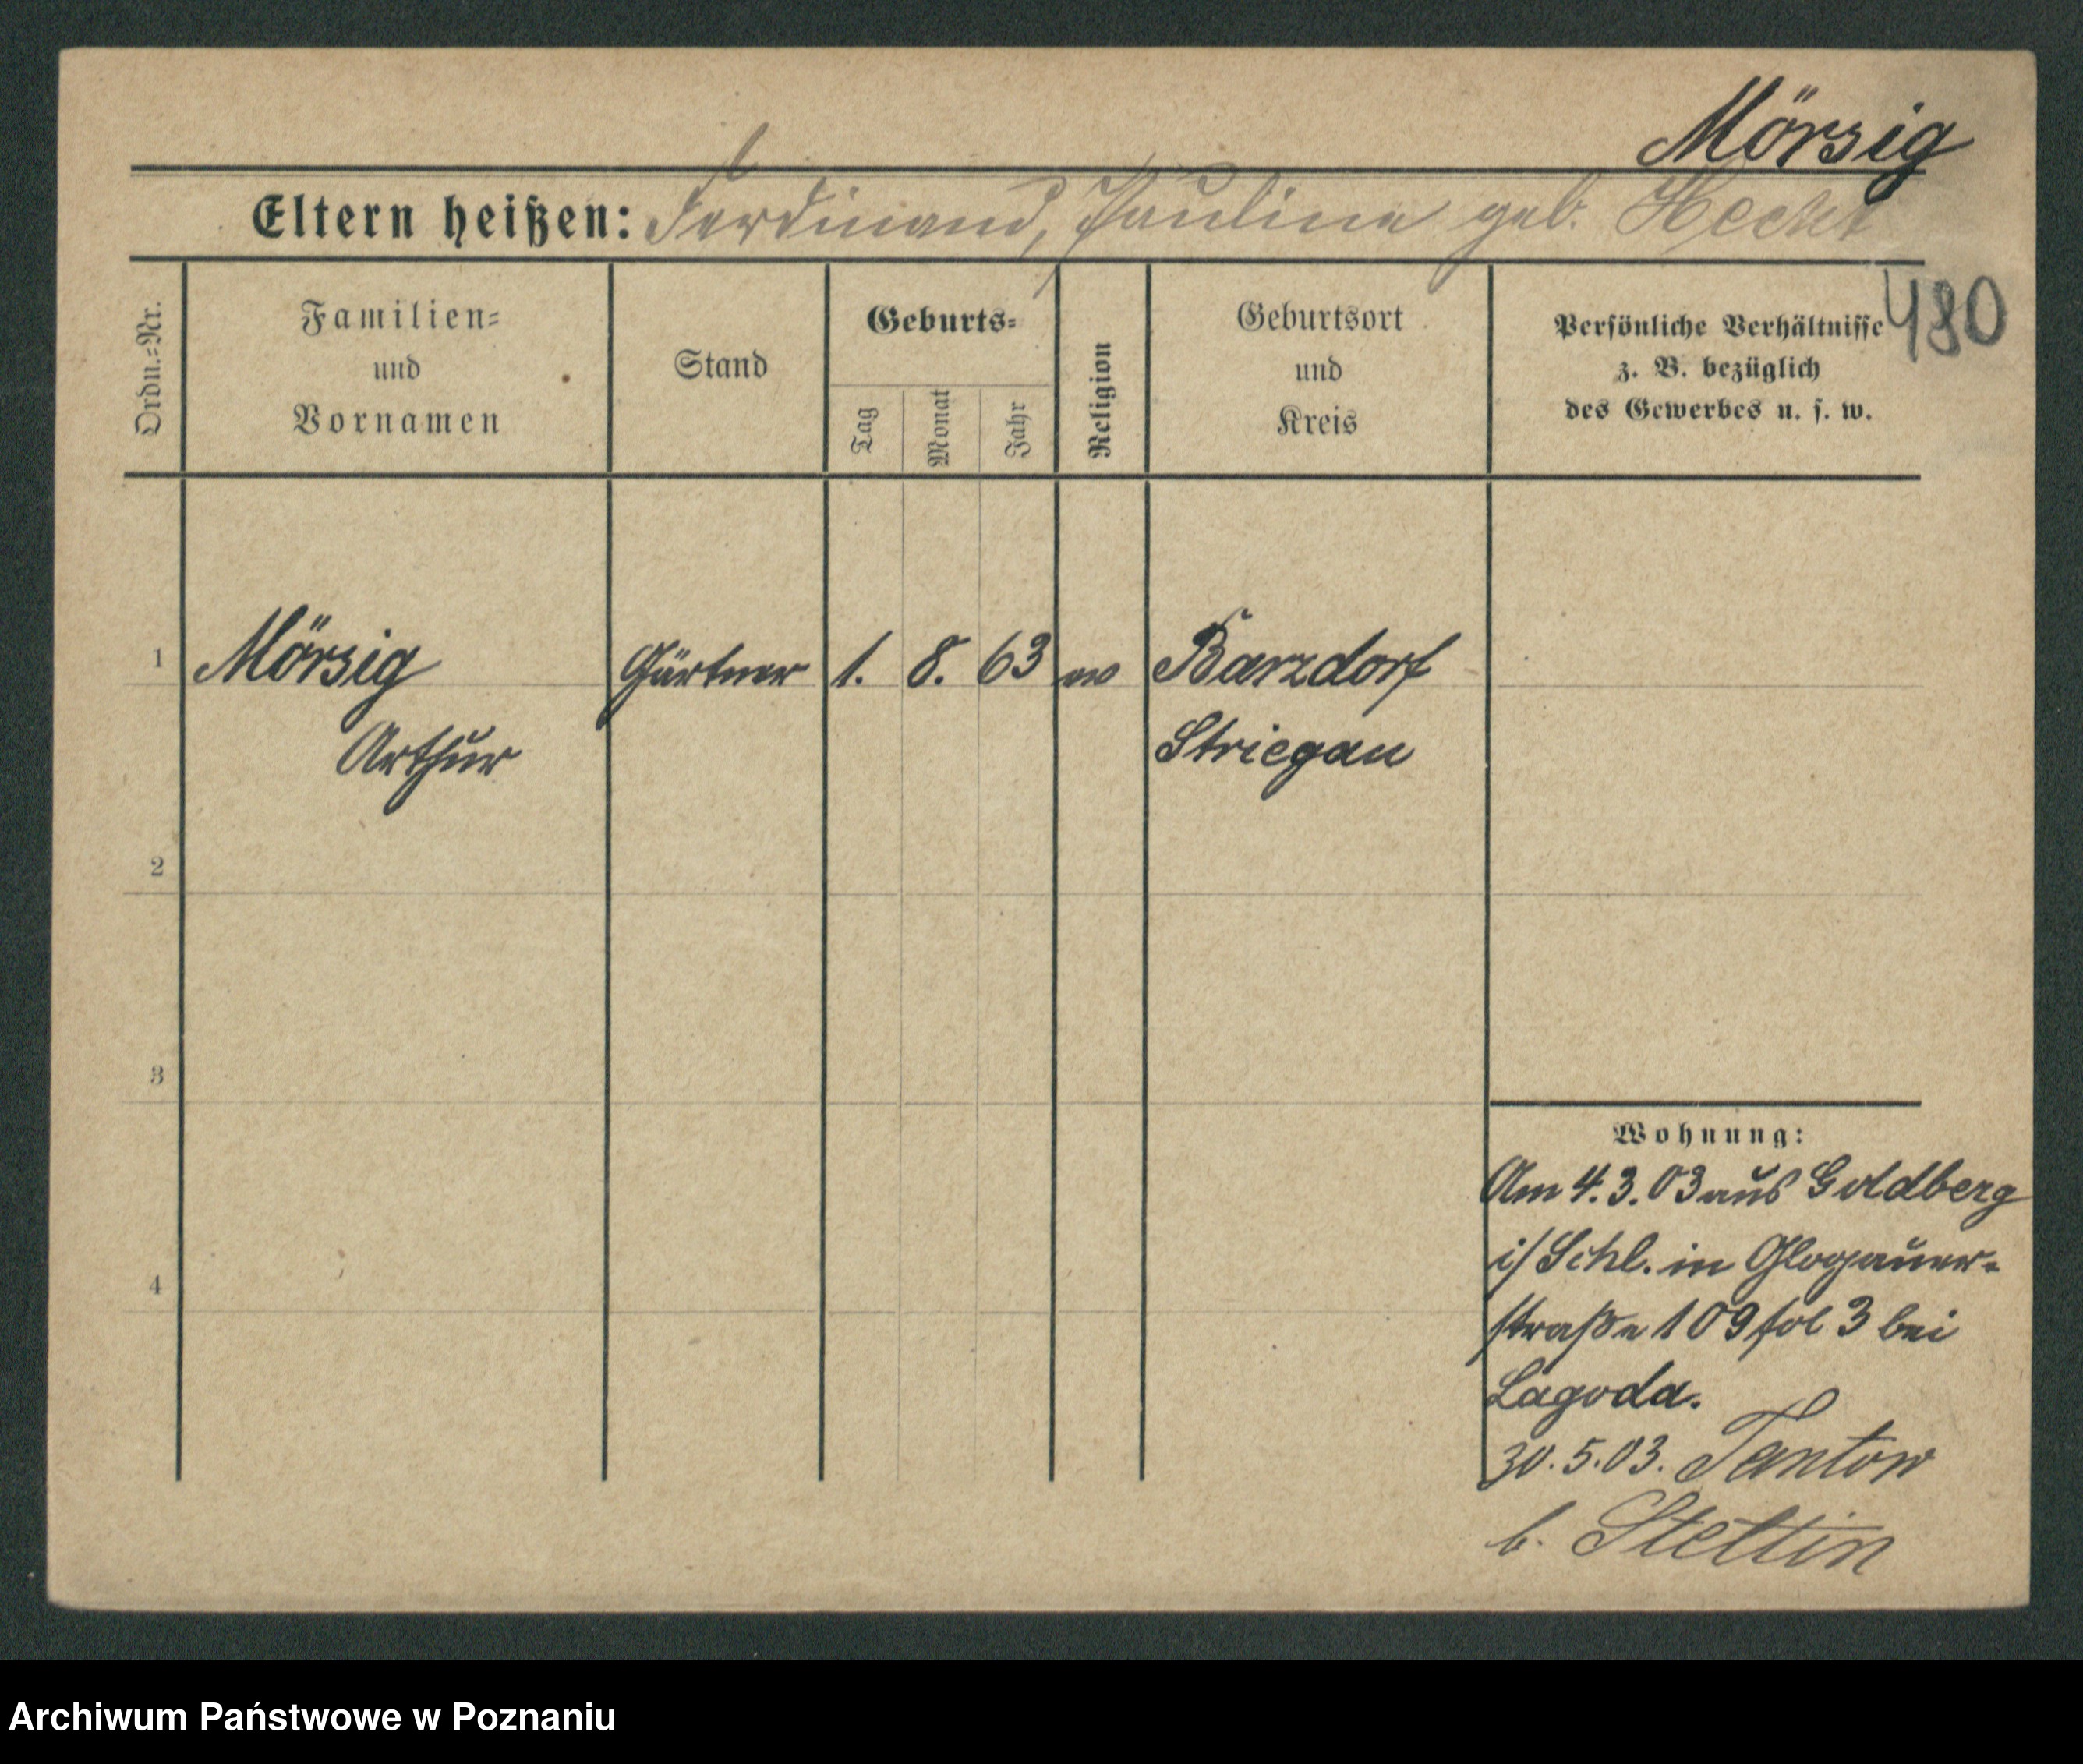 Mörsig
Eltern heißen: Ferdinand, Pauline geb. Hecht
480
Ordn.-Nr.
Familien-
und
Vornamen
Stand
Geburts-
Tag
Monat
Jahr
Religion
Geburtsort
und
Kreis
Persönliche Verhältnisse
z. B. bezüglich
des Gewerbes u. s. w.
1 Mörsig Gärtner 1. 8. 63 ev Barzdorf
Arthur Striegau
2
3
4
Wohnung:
Am 4.3.03 aus Goldberg
i/Schl. in Glogauer-
straße 109 fol 3 bei
Lagoda.
30.5.03. Tantow
b. Stettin
Archiwum Państwowe w Poznaniu